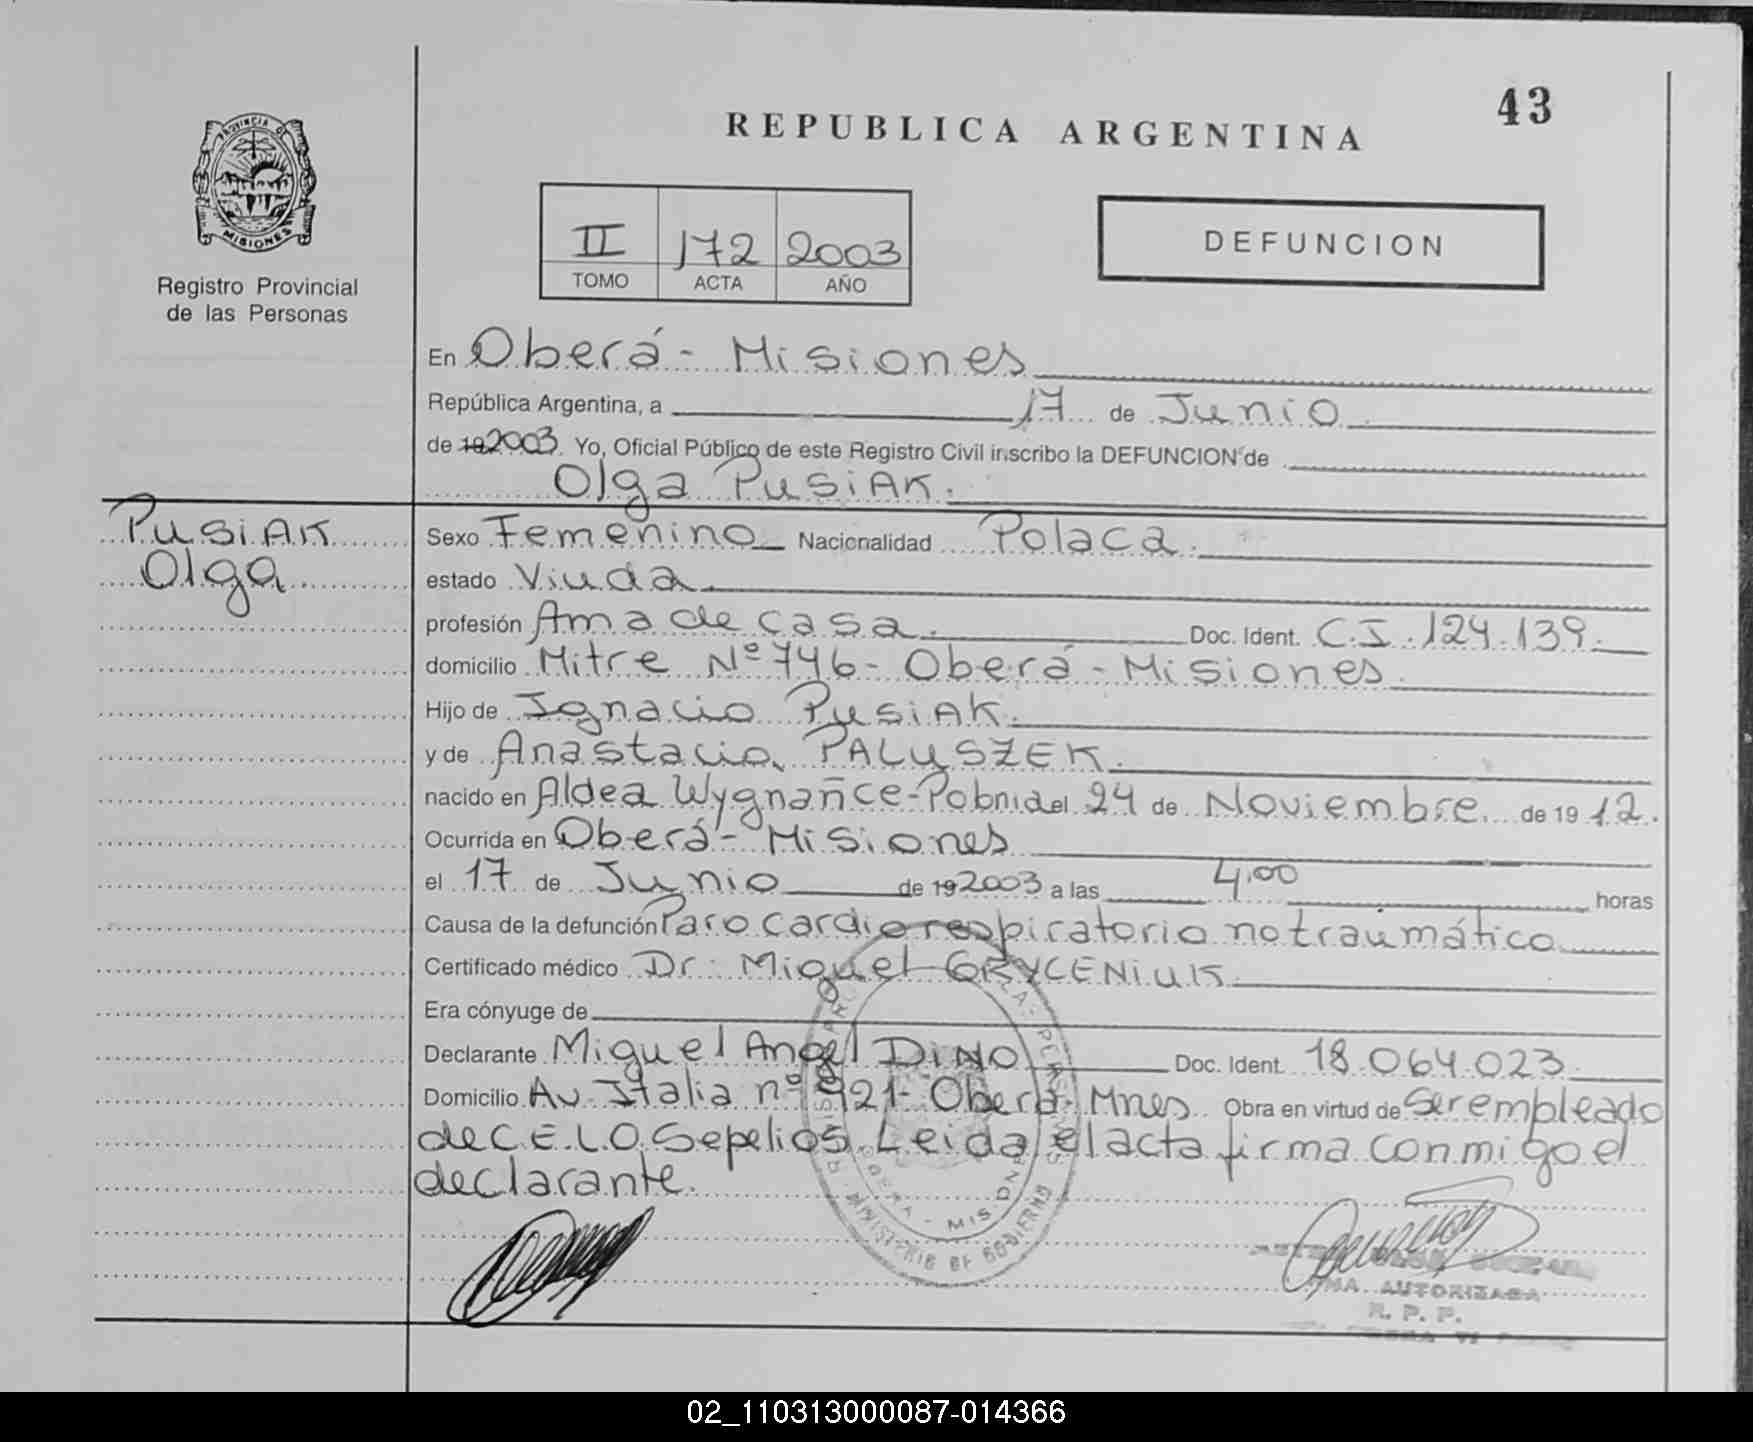 43
REPUBLICA ARGENTINA
PROVINCIA DE
MISIONES
Registro Provincial
de las Personas
II 172 2003
TOMO ACTA AÑO
DEFUNCION
En Oberá - Misiones
República Argentina, a 17 de Junio
de 19 2003. Yo, Oficial Público de este Registro Civil inscribo la DEFUNCION de
Olga PUSIAK.
PUSIAK
Olga
Sexo Femenino Nacionalidad Polaca.
estado Viuda.
profesión Ama de casa. Doc. Ident. C.I. 124.139.
domicilio Mitre Nº 746 - Oberá - Misiones
Hijo de Ignacio PUSIAK.
y de Anastacia PALUSZEK.
nacido en Aldea Wygnañce - el 24 de Noviembre de 19 12.
Ocurrida en Oberá - Misiones
el 17 de Junio de 19 2003 a las 4,00 horas
Causa de la defunción Paro cardiorespiratorio no traumático
Certificado médico Dr. Miguel GRYCENIUK
Era cónyuge de
Declarante Miguel Angel DINO Doc. Ident. 18.064.023
Domicilio Av. Italia nº 921 - Oberá - Mnes Obra en virtud de ser empleado
de C.E.L.O. Sepelios. Leida el acta firma conmigo el
declarante.
MINISTERIO DE GOBIERNO
AUTORIZADA
R. P. P.
02_110313000087-014366